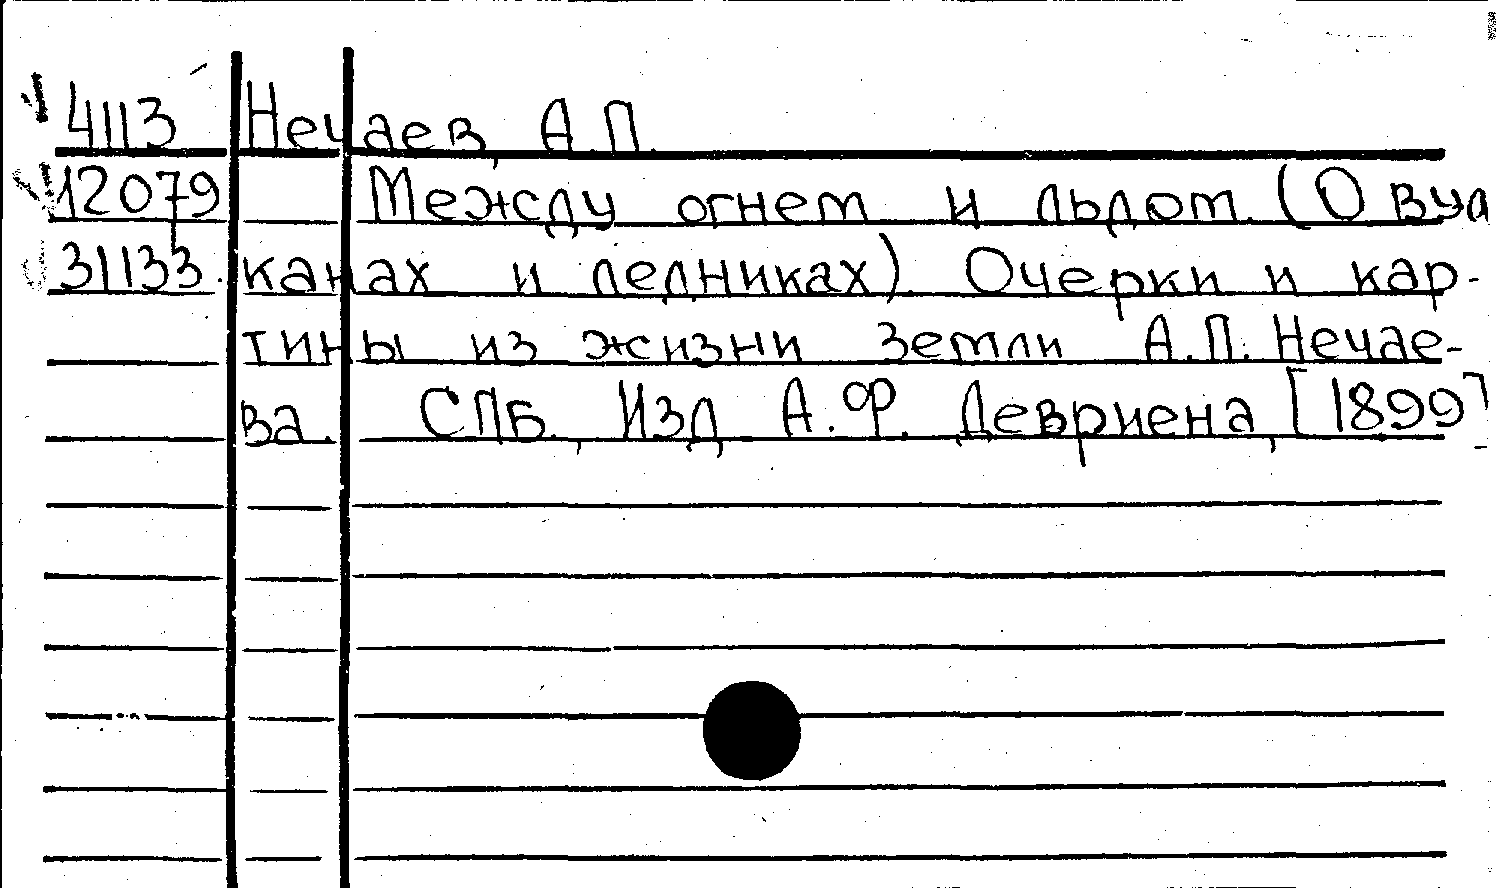 4113 Нечаев, А.П.
12079 Между огнем и льдом. (О вул
31133. канах и ледниках). Очерки и кар-
тины из жизни Земли А.П. Нечае-
ва. СПБ., Изд. А.Ф. Девриена, [1899]